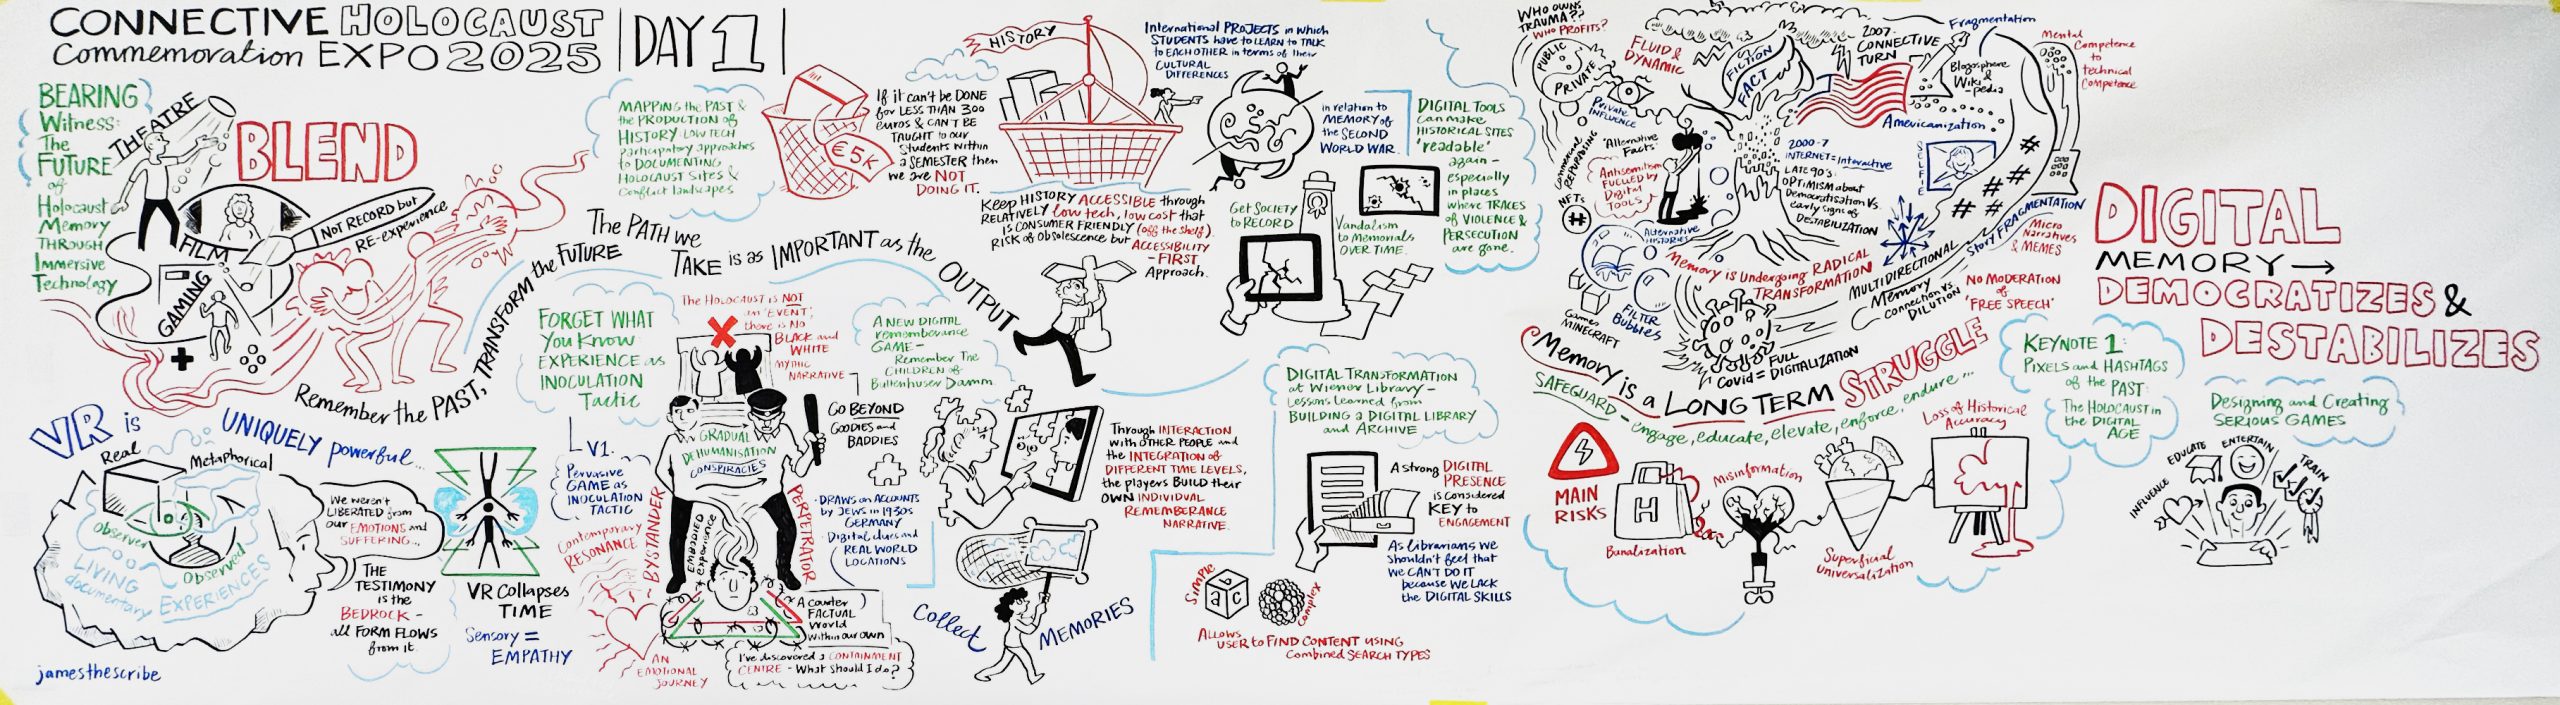 CONNECTIVE HOLOCAUST
Commemoration EXPO 2025
DAY 1
BEARING
Witness:
The
FUTURE
of
Holocaust
Memory
THROUGH
Immersive
Technology
THEATRE
FILM
GAMING
BLEND
NOT RECORD but
RE-experience
Remember the PAST, TRANSFORM the FUTURE
The PATH we
TAKE is as IMPORTANT as the
OUTPUT
VR is
UNIQUELY powerful...
Real
Metaphorical
Observer
Observed
LIVING
documentary EXPERIENCES
We weren't
LIBERATED from
our EMOTIONS and
SUFFERING...
THE
TESTIMONY
is the
BEDROCK -
all FORM FLOWS
from it.
VR Collapses
TIME
Sensory =
EMPATHY
jamesthescribe
MAPPING the PAST &
the PRODUCTION of
HISTORY LOW TECH
Participatory approaches
to DOCUMENTING
HOLOCAUST Sites &
Conflict landscapes
€5K
If it can't be DONE
for LESS THAN 300
euros & CAN'T BE
TAUGHT to our
Students within
a SEMESTER then
we are NOT
DOING IT.
HISTORY
KEEP HISTORY ACCESSIBLE through
RELATIVELY low tech, low cost that
is CONSUMER FRIENDLY (off the shelf).
RISK of Obsolescence but ACCESSIBILITY
-FIRST
Approach.
International PROJECTS in which
STUDENTS have to LEARN to TALK
to EACH OTHER in terms of their
CULTURAL
DIFFERENCES
in relation to
MEMORY of
the SECOND
WORLD WAR.
DIGITAL TOOLS
Can make
HISTORICAL SITES
'readable'
again -
especially
in places
where TRACES
of VIOLENCE &
PERSECUTION
are gone.
Get SOCIETY
to RECORD
Vandalism
to Memorials
OVER TIME.
FORGET WHAT
You Know
EXPERIENCE as
INOCULATION
Tactic
The HOLOCAUST is NOT
an 'EVENT',
there is NO
BLACK and
WHITE
MYTHIC
NARRATIVE
GO BEYOND
GOODIES and
BADDIES
LV1.
Pervasive
GAME as
INOCULATION
TACTIC
GRADUAL
DEHUMANISATION
CONSPIRACIES
BYSTANDER
PERPETRATOR
EMBODIED
experience
Contemporary
RESONANCE
AN
EMOTIONAL
JOURNEY
• DRAWS on ACCOUNTS
by JEWS in 1930s
GERMANY
Digital clues and
REAL WORLD
LOCATIONS
A counter
FACTUAL
World
within our own
I've discovered a CONTAINMENT
CENTRE - What should I do?
A NEW DIGITAL
rememberance
GAME -
Remember The
CHILDREN of
Bullenhuser Damm
Through INTERACTION
with OTHER PEOPLE and
the INTEGRATION of
DIFFERENT TIME LEVELS,
the players BUILD their
OWN INDIVIDUAL
REMEMBERANCE
NARRATIVE.
Collect MEMORIES
DIGITAL TRANSFORMATION
at Wiener Library -
Lessons learned from
BUILDING a DIGITAL LIBRARY
and ARCHIVE
A strong DIGITAL
PRESENCE
is considered
KEY to
ENGAGEMENT
As librarians we
shouldn't feel that
WE CAN'T DO IT
because WE LACK
the DIGITAL SKILLS
SIMPLE
a b c
Complex
ALLOWS
USER to FIND CONTENT USING
Combined SEARCH TYPES
WHO OWNS
TRAUMA??
WHO PROFITS?
PUBLIC
PRIVATE
FLUID &
DYNAMIC
Private
INFLUENCE
Commercial
REPURPOSING
NFTs
#
"Alternative
Facts"
Antisemitism
FUELLED by
Digital
TOOLS
Alternative
HISTORIES
FILTER
Bubbles
Games
MINECRAFT
FICTION
FACT
2007-
CONNECTIVE
TURN
Fragmentation
Blogosphere
&
Wiki
-pedia
Americanization
Mental
Competence
to
technical
Competence
2000-7
INTERNET = Interactive
LATE 90's:
OPTIMISM about
Democratisation vs.
early signs of
DESTABILIZATION
SELFIE
# # # # #
STORY FRAGMENTATION
Micro
Narratives
& MEMES
Memory is Undergoing RADICAL
TRANSFORMATION
MULTIDIRECTIONAL
Memory
connection vs.
DILUTION
NO MODERATION
of
'FREE SPEECH'
Covid = FULL
DIGITALIZATION
Memory is a LONG TERM STRUGGLE
SAFEGUARD - engage, educate, elevate, enforce, endure...
MAIN
RISKS
H
Banalization
Misinformation
Superficial
Universalization
Loss of Historical
Accuracy
DIGITAL
MEMORY →
DEMOCRATIZES &
DESTABILIZES
KEYNOTE 1:
PIXELS and HASHTAGS
of the PAST:
The HOLOCAUST in
the DIGITAL
AGE
Designing and Creating
SERIOUS GAMES
INFLUENCE
EDUCATE
ENTERTAIN
TRAIN